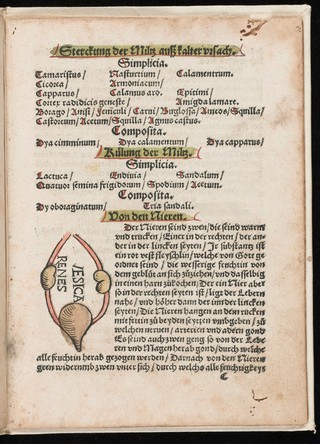 Sterckung der Miltz auß kalter vrsach.
Simplicia.
Tamariscus/ Nasturtium/ Calamentrum.
Cicorea/ Armoniacum/
Capparus/ Calamus aro. Epitimi/
Cortex radidicis geneste/ Amigda lamare.
Borago/ Anisi/ Feniculi/ Carui/ Buglossa/ Ameos/ Squilla/
Castoreum/ Acetum/ Squilla/ Agnus castus.
Composita.
Dya cimminum/ Dya calamentum/ Dya capparus/
Külung der Miltz.
Simplicia.
Lactuca/ Endiuia/ Sandalum/
Quatuor semina frigidorum/ Spodium/ Acetum.
Composita.
Dy oboraginatum/ Tria sandali.
Von den Nieren.
Der Nieren seind zwen/ die seind warm
vnd trucken/ Einer in der rechten/ der an-
der in der lincken seyten/ Ir substantz ist
ein rot vest fleyschlin/ welche von Got ge
ordnet seind/ die wesserige feuchtin von
dem geblüt an sich zůziehen/ vnd dasselbig
in reinen harn zů kochen/ Der ein Nier aber
so in der rechten seyten ist/ ligt der Lebern
nahe/ vnd höher dann der in der lincken
seyten/ Die Nieren hangen an dem rucken
mit fettin zů beyden seytten vmbgeben/ zů
welchen neruen/ arterien vnd adern gond
Es seind auch zwen geng so von der Lebe
ren vnd Magen herab gond/ durch welche
alle feuchtin herab gezogen werden/ Darnach von den Nieren
geen widerumb zwen vnter sich/ durch welche alle feuchtigkeyt
VESICA
RENES